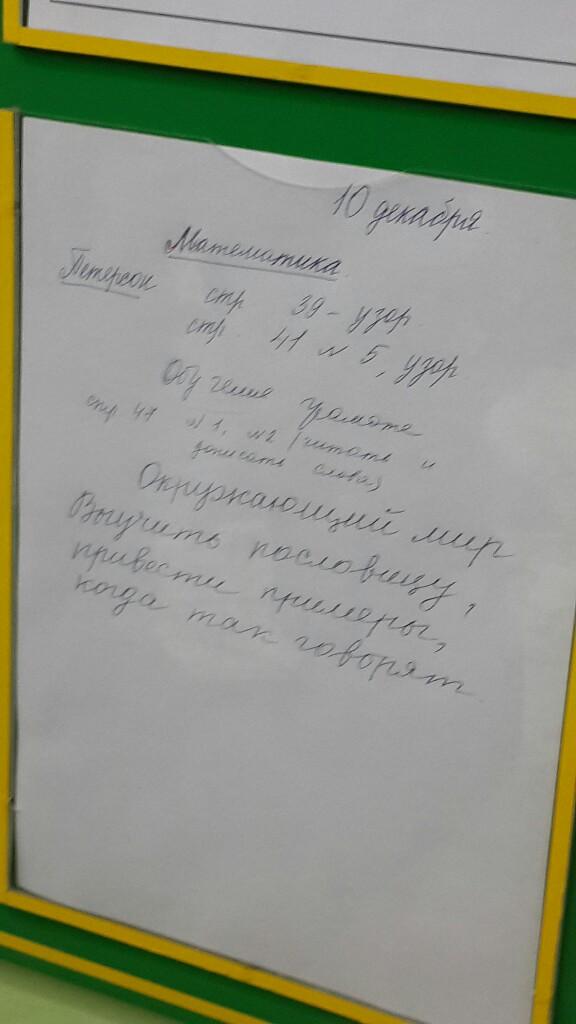 10 декабря
Математика
Петерсон
стр 39 - узор
стр. 41 № 5, узор
Обучение грамоте
стр 41 №1, №2 (читать и
дописать слова)
Окружающий мир
Выучить пословицу,
привести примеры,
когда так говорят